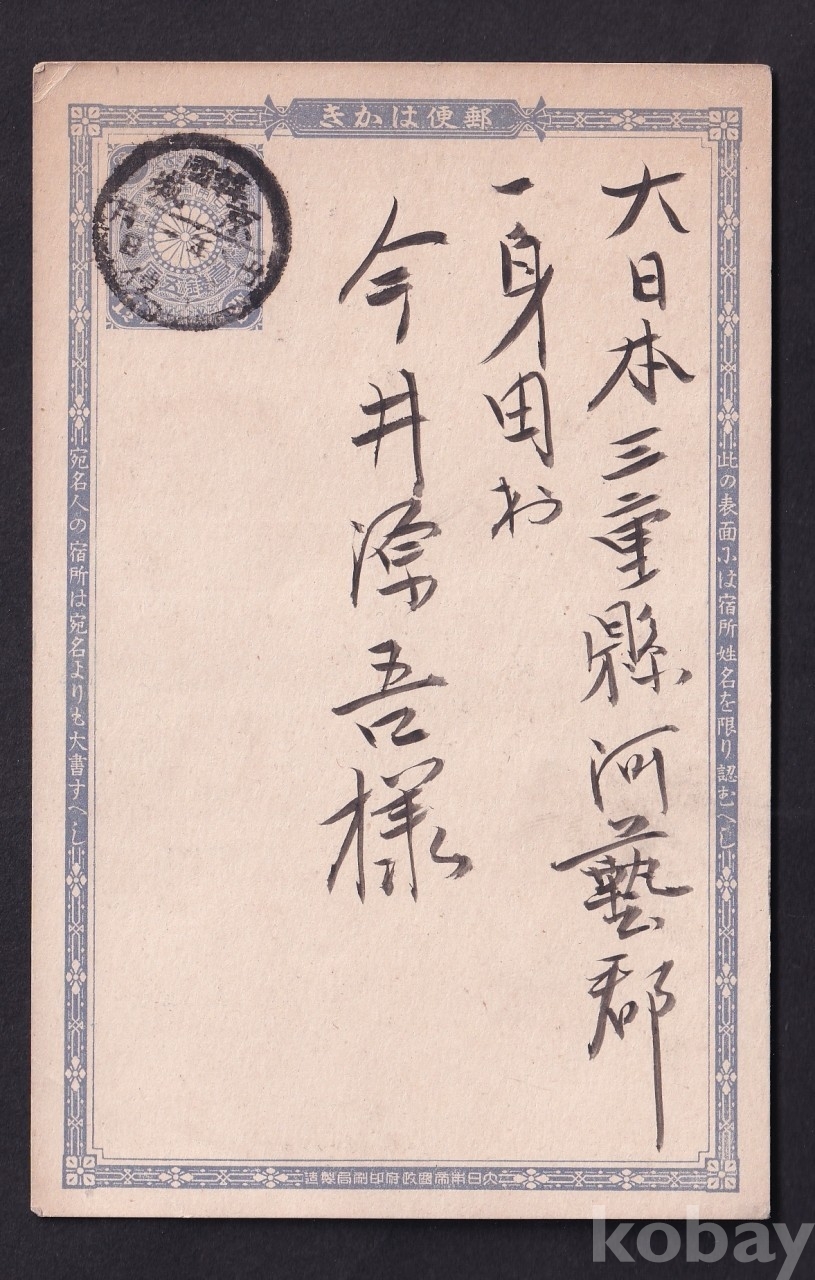 郵便はかき
此の表面には宿所姓名を限り認むへし
大日本三重縣河藝郡
一身田村
今井源吾様
宛名人の宿所は宛名よりも大書すへし
大日本帝國政府印刷局製造
韓國
京城
kobay